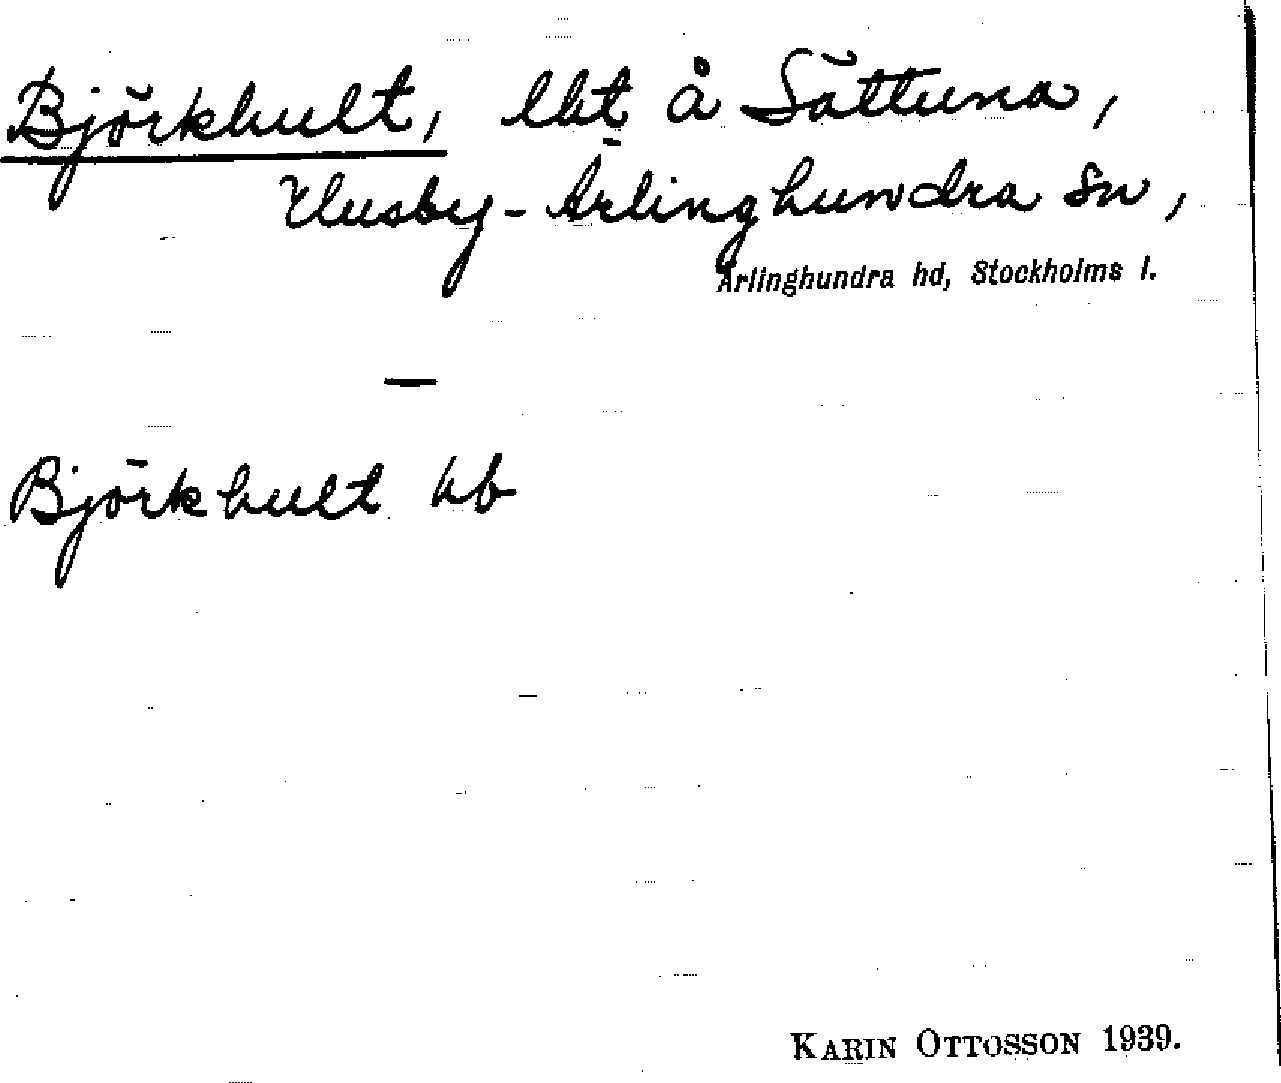 Björkhult, lht å Sättuna,
Husby-Ärlinghundra sn,
Ärlinghundra hd, Stockholms l.
—
Björkhult hb
KARIN OTTOSSON 1939.